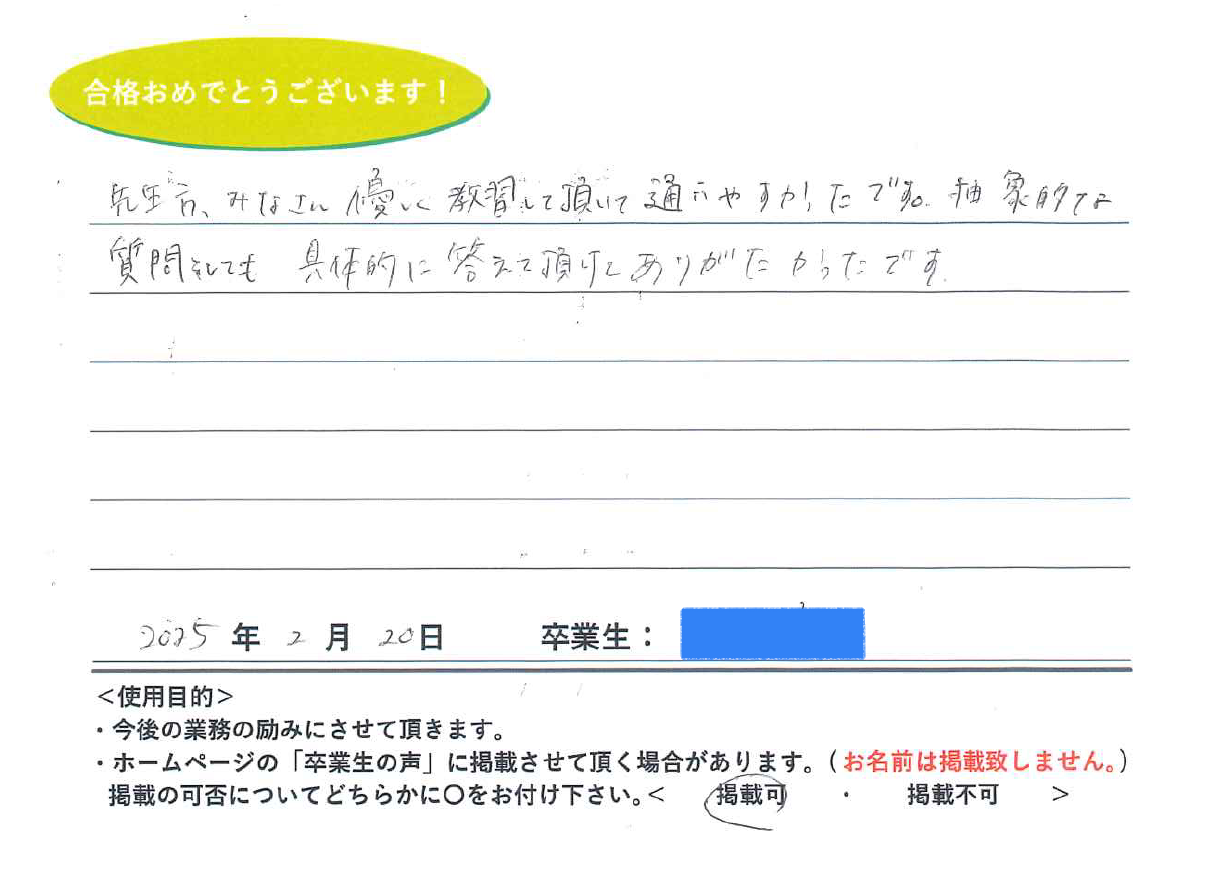 合格おめでとうございます！
先生方、みなさん優しく教習して頂いて通いやすかったです。抽象的な
質問をしても具体的に答えて頂けてありがたかったです。
2025年2月20日 卒業生：
＜使用目的＞
・今後の業務の励みにさせて頂きます。
・ホームページの「卒業生の声」に掲載させて頂く場合があります。（お名前は掲載致しません。）
掲載の可否についてどちらかに〇をお付け下さい。＜ 掲載可 ・ 掲載不可 ＞